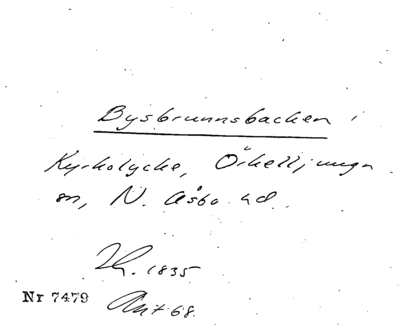 Bysbrunnsbacken i
Kyrkolycke, Örkelljunga
sn, N. Åsbo hd.
1835
Nr 7479 Ant 68.